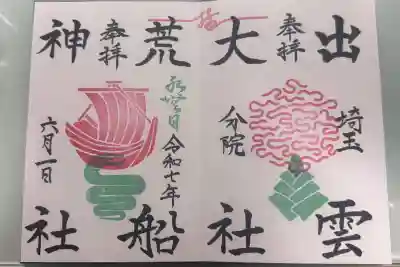 出雲
埼玉
奉拝
大社
分院
荒船
令和七年
奉拝
神社
六月一日